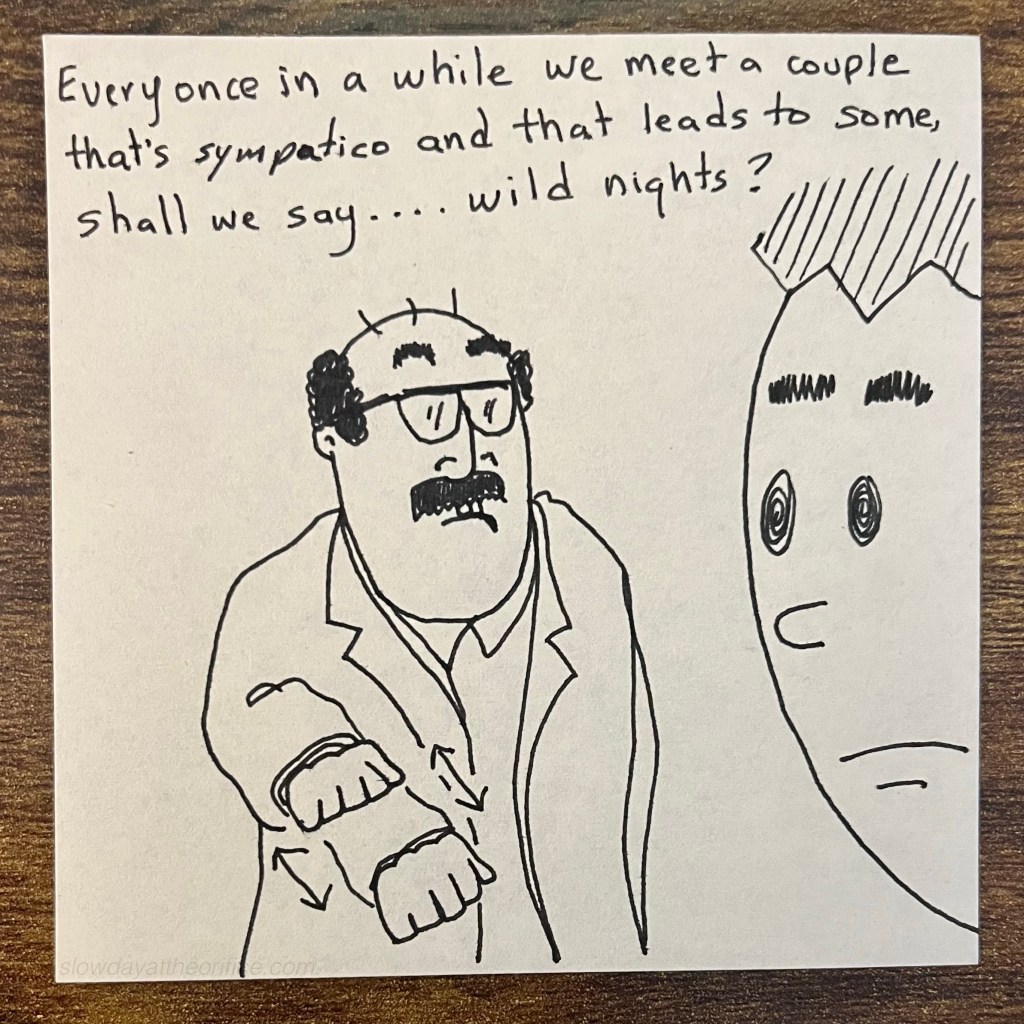 Every once in a while we meet a couple
that's sympatico and that leads to some,
shall we say.... wild nights?
slowdayattheorifice.com